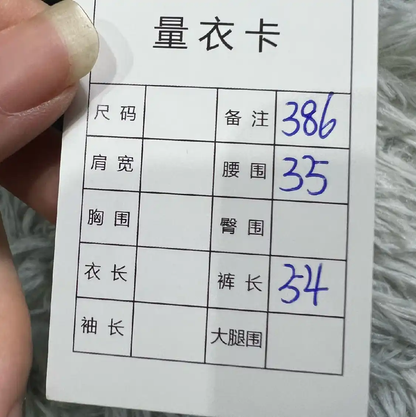 量衣卡
尺码 备注 386
肩宽 腰围 35
胸围 臀围
衣长 裤长 54
袖长 大腿围